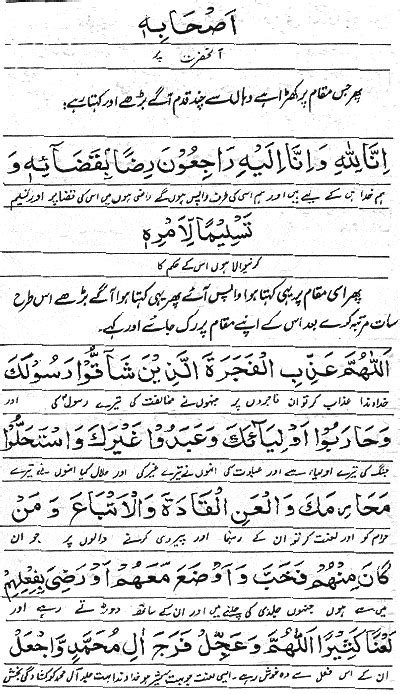 اَصْحَابِهٖ
آنحضرت پر
پھر جس مقام پر کھڑا ہے وہاں سے چند قدم آگے بڑھے اور کہتا رہے:
اِنَّا لِلّٰهِ وَاِنَّا اِلَيْهِ رَاجِعُوْنَ رِضًا بِقَضَآئِهٖ وَ
ہم خدا ہی کے لیے ہیں اور ہم اسی کی طرف واپس ہوں گے راضی ہوں میں اس کی قضا پر اور تسلیم
تَسْلِيْمًا لِاَمْرِهٖ
کرنیوالا ہوں اس کے حکم کا
پھر اسی مقام پر یہی کہتا ہوا واپس آئے پھر یہی کہتا ہوا آگے بڑھے اس طرح
سات مرتبہ کرے بعد اس کے اپنے مقام پر رک جائے اور کہے۔
اَللّٰهُمَّ عَذِّبِ الْفَجَرَةَ الَّذِيْنَ شَآقُّوْا رَسُوْلَكَ
خداوندا عذاب کر تو ان فاجروں پر جنہوں نے مخالفت کی تیرے رسولؐ کی اور
وَحَارَبُوْا اَوْلِيَآئَكَ وَعَبَدُوْا غَيْرَكَ وَاسْتَحَلُّوْا
جنگ کی تیرے اولیاء سے اور عبادت کی انہوں نے تیرے غیر کی اور حلال کیا انہوں نے تیرے
مَحَارِمَكَ وَالْعَنِ الْقَادَةَ وَالْاَتْبَاعَ وَمَنْ
حرام کو اور لعنت کر تو ان کے رہنما اور پیروی کرنے والوں پر جو ان
كَانَ مِنْهُمْ فَخَبَّ وَاَوْضَعَ مَعَهُمْ اَوْ رَضِيَ بِفِعْلِهِمْ
میں سے ہوں جنہوں جلدی کی چلنے میں اور ان کے ساتھ دوڑتے رہے اور
لَعْنًا كَثِيْرًا اَللّٰهُمَّ وَعَجِّلْ فَرَجَ اٰلِ مُحَمَّدٍ وَّاجْعَلْ
ان کے اس فعل سے وہ خوش رہے۔ ایسی لعنت جو بہت کثیر ہو خداوندا بہت جلد آل محمد کو کشادگی بخش